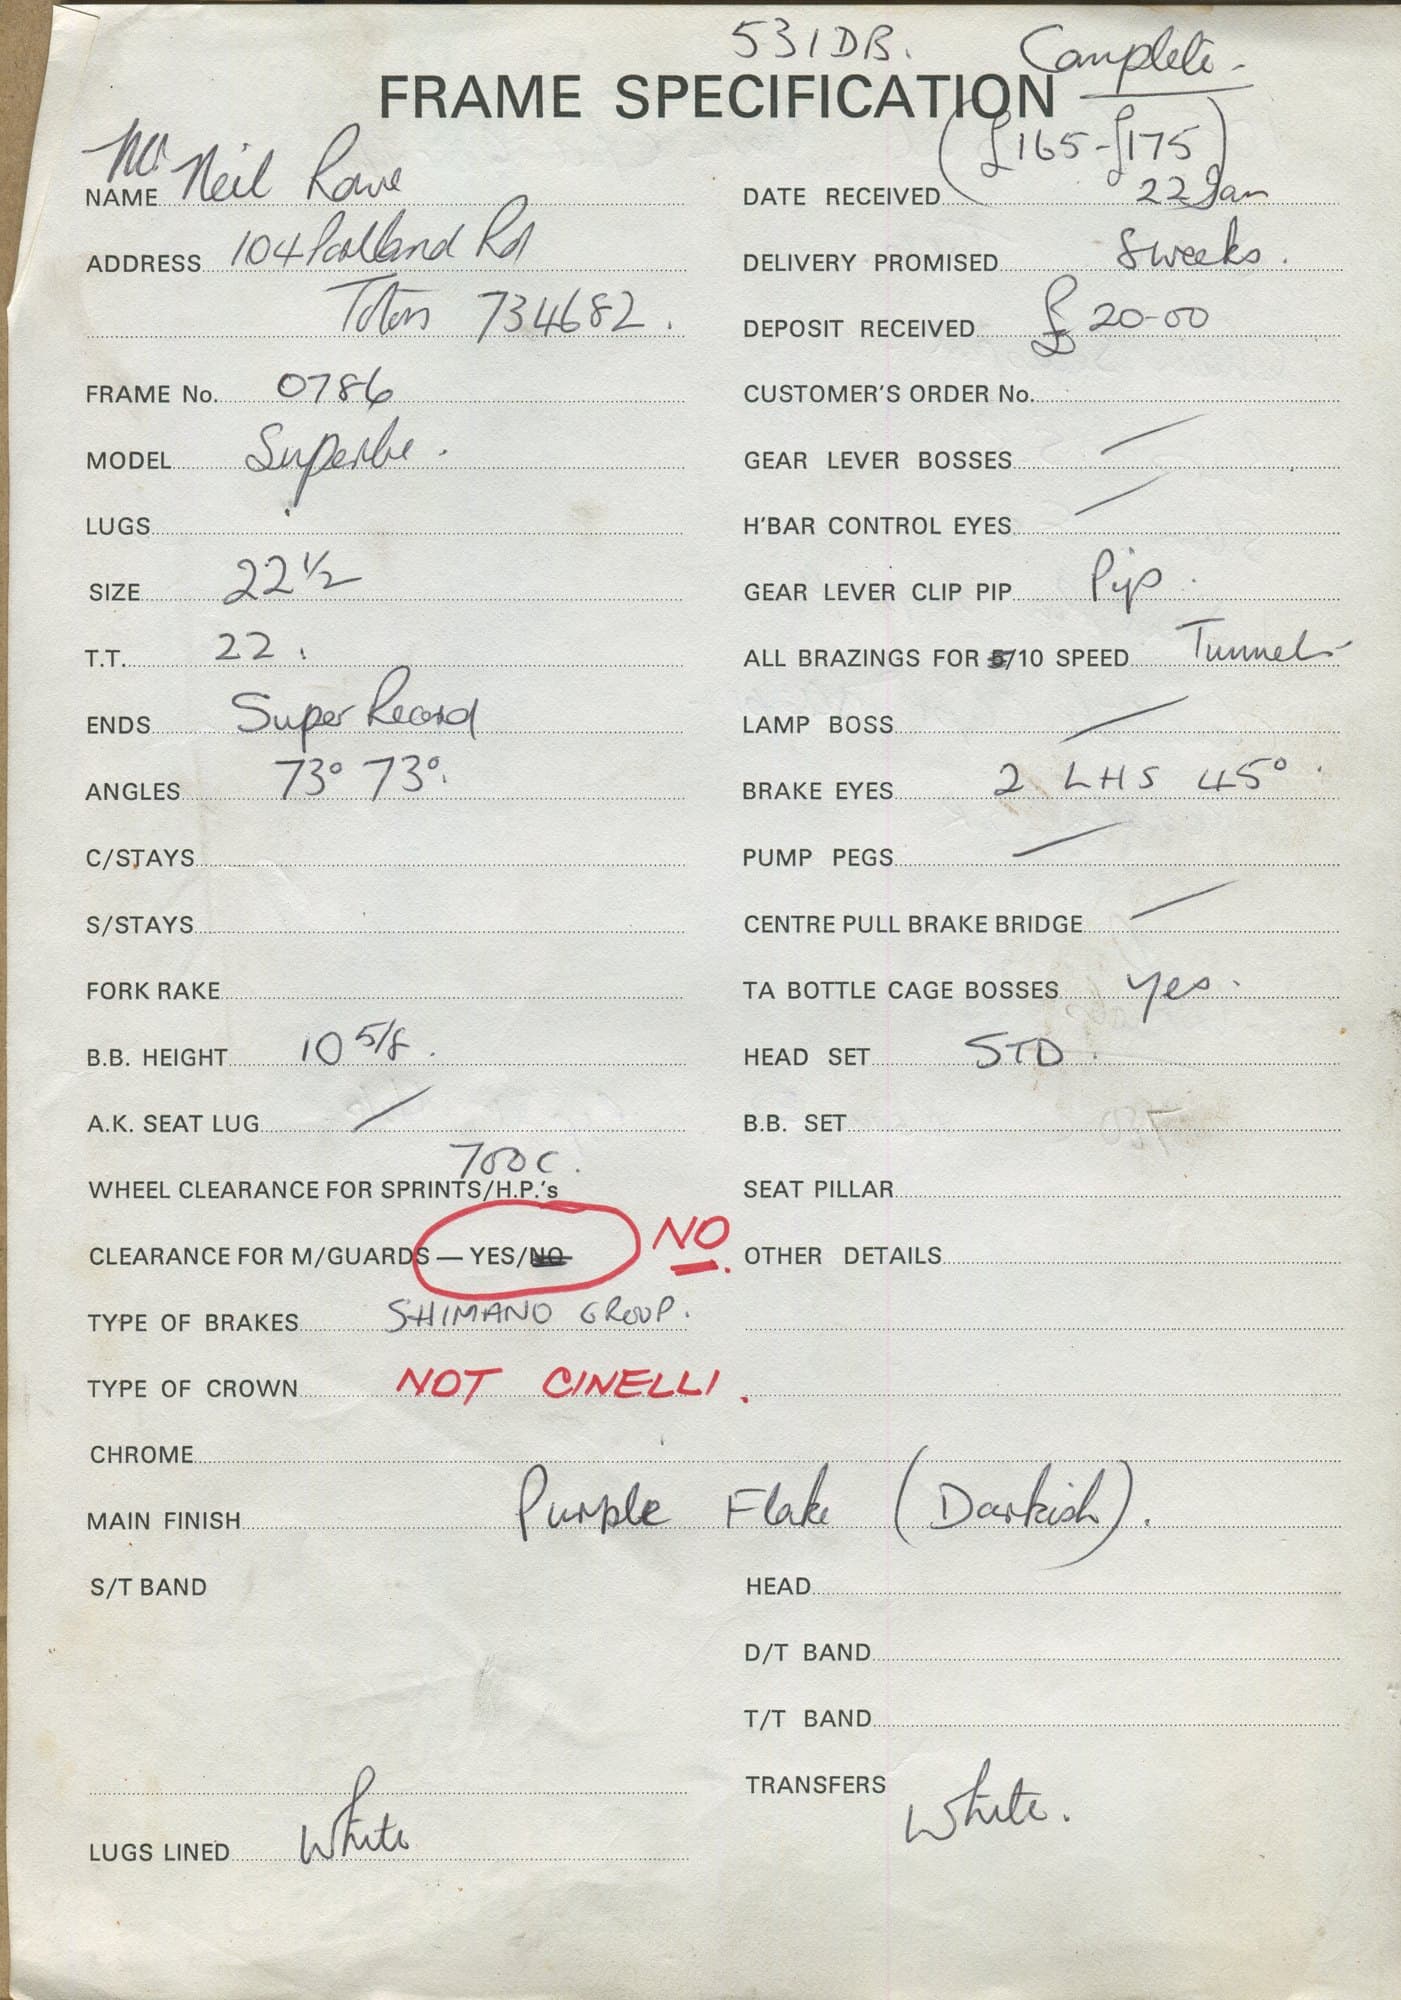 531DB. Complete.
FRAME SPECIFICATION
(£165-£175)
NAME Mr Neil Rowe
ADDRESS 104 Portland Rd
Toton 734682.
FRAME No. 0786
MODEL Superbe.
LUGS
SIZE 22 1/2
T.T. 22.
ENDS Super Record
ANGLES 73° 73°.
C/STAYS
S/STAYS
FORK RAKE
B.B. HEIGHT 10 5/8.
A.K. SEAT LUG /
700c.
WHEEL CLEARANCE FOR SPRINTS/H.P.'s
CLEARANCE FOR M/GUARDS — YES/NO NO.
TYPE OF BRAKES SHIMANO GROUP.
TYPE OF CROWN NOT CINELLI.
CHROME
MAIN FINISH Purple Flake (Darkish).
S/T BAND
LUGS LINED White
DATE RECEIVED 22 Jan
DELIVERY PROMISED 8 weeks.
DEPOSIT RECEIVED £20-00
CUSTOMER'S ORDER No.
GEAR LEVER BOSSES /
H'BAR CONTROL EYES /
GEAR LEVER CLIP PIP Pip.
ALL BRAZINGS FOR 5/10 SPEED Tunnels
LAMP BOSS /
BRAKE EYES 2 LHS 45°.
PUMP PEGS /
CENTRE PULL BRAKE BRIDGE /
TA BOTTLE CAGE BOSSES yes.
HEAD SET STD.
B.B. SET
SEAT PILLAR
OTHER DETAILS
HEAD
D/T BAND
T/T BAND
TRANSFERS White.